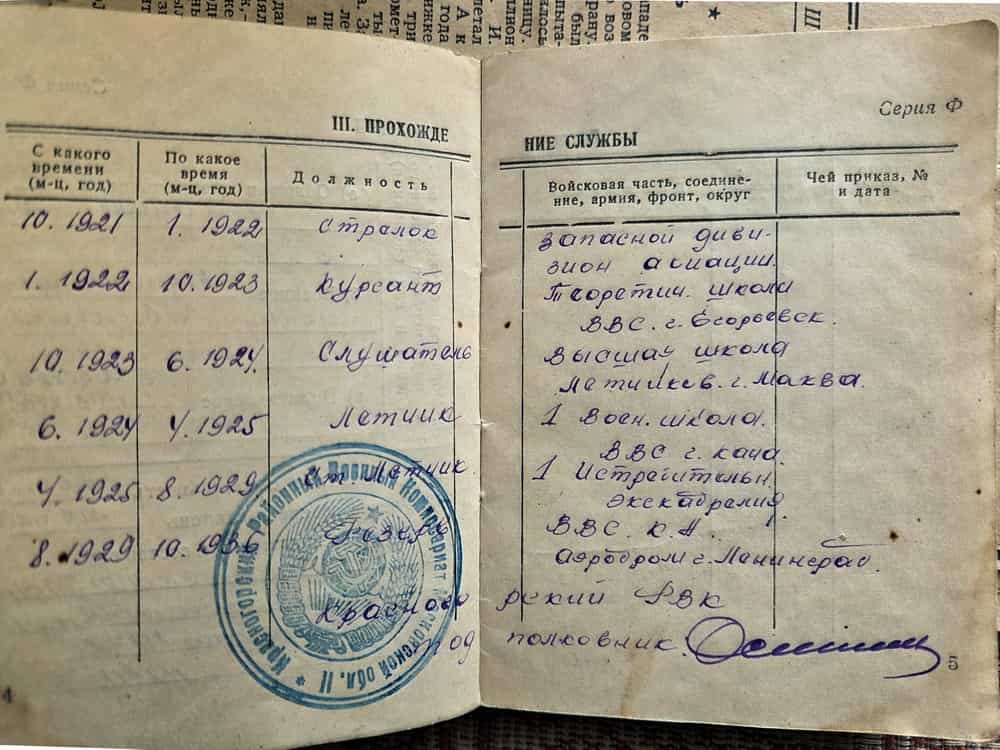 Серия Ф
III. ПРОХОЖДЕ
НИЕ СЛУЖБЫ
С какого времени (м-ц, год)
По какое время (м-ц, год)
Должность
Войсковая часть, соедине-
ние, армия, фронт, округ
Чей приказ, №
и дата
10. 1921 1. 1922 Стрелок запасной диви-
зион авиации.
1. 1922 10. 1923 Курсант Теоретич. школа
ВВС. г. Егорьевск.
10. 1923 6. 1924. Слушатель Высшая школа
летчиков. г. Москва.
6. 1924 4. 1925 Летчик 1 Воен. школа.
ВВС г. Кача.
4. 1925 8. 1929 Ст. Летчик. 1 Истребительн.
Эскадрелия
8. 1929 10. 1936 ВВС. К. А.
Аэродром г. Ленинград.
Красного рский РВК
под полковник.
Красногорский Районный Военный Комиссариат Московской обл. II
4
5